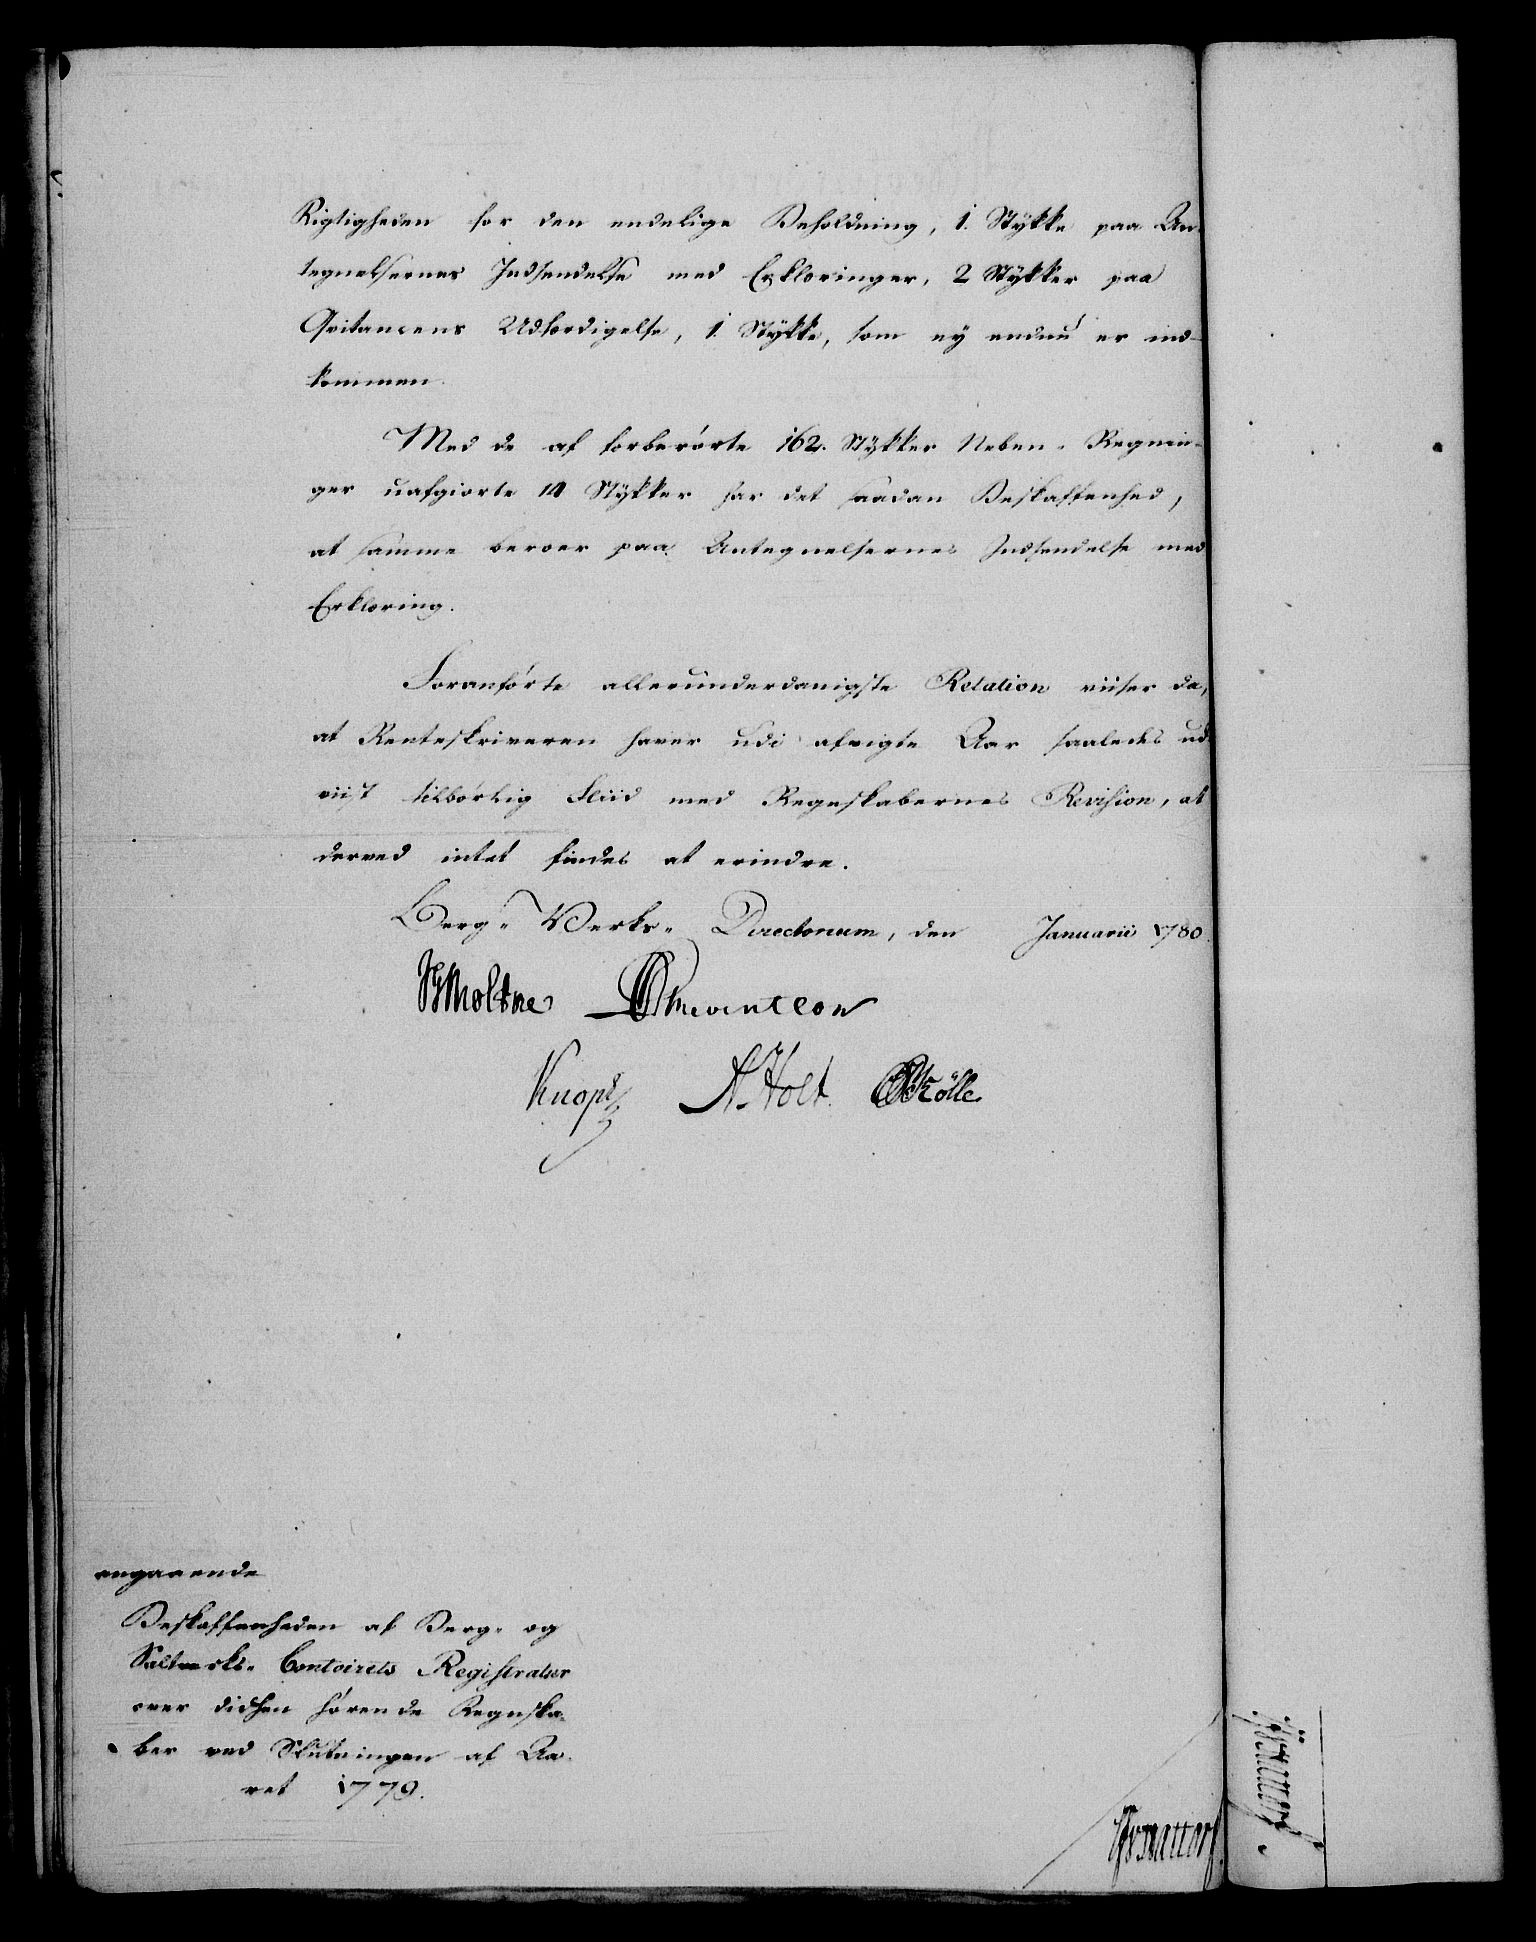 Rigtigheden for den endelige Beholdning, 1. Stykke paa An-
tegnelsernes Indsendelse med Erklæringer, 2 Stykker paa
Qvitancens Udfærdigelse, 1. Stykke, som ey endnu er ind-
kommen.
Med de af forberørte 162. Stykker Neben-Regnin-
ger uafgiorte 14 Stykker har det saadan Beskaffenhed,
at samme beroer paa Antegnelsernes Indsendelse med
Erklæring.
Foranførte allerunderdanigste Relation viiser da,
at Renteskriveren haver udi afvigte Aar saaledes ud-
viist tilbørlig Fliid med Regnskabernes Revision, at
derved intet findes at erindre.
Berg-Verks-Directorium, den Januarii 1780.
Moltke
Knoph A. Holt
angaaende
Beskaffenheden af Berg- og
Saltverks-Contoirets Registratur
over didhen hørende Regnska-
ber ved Slutningen af Aa-
ret 1779.